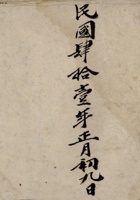 民國肆拾壹年正月初九日